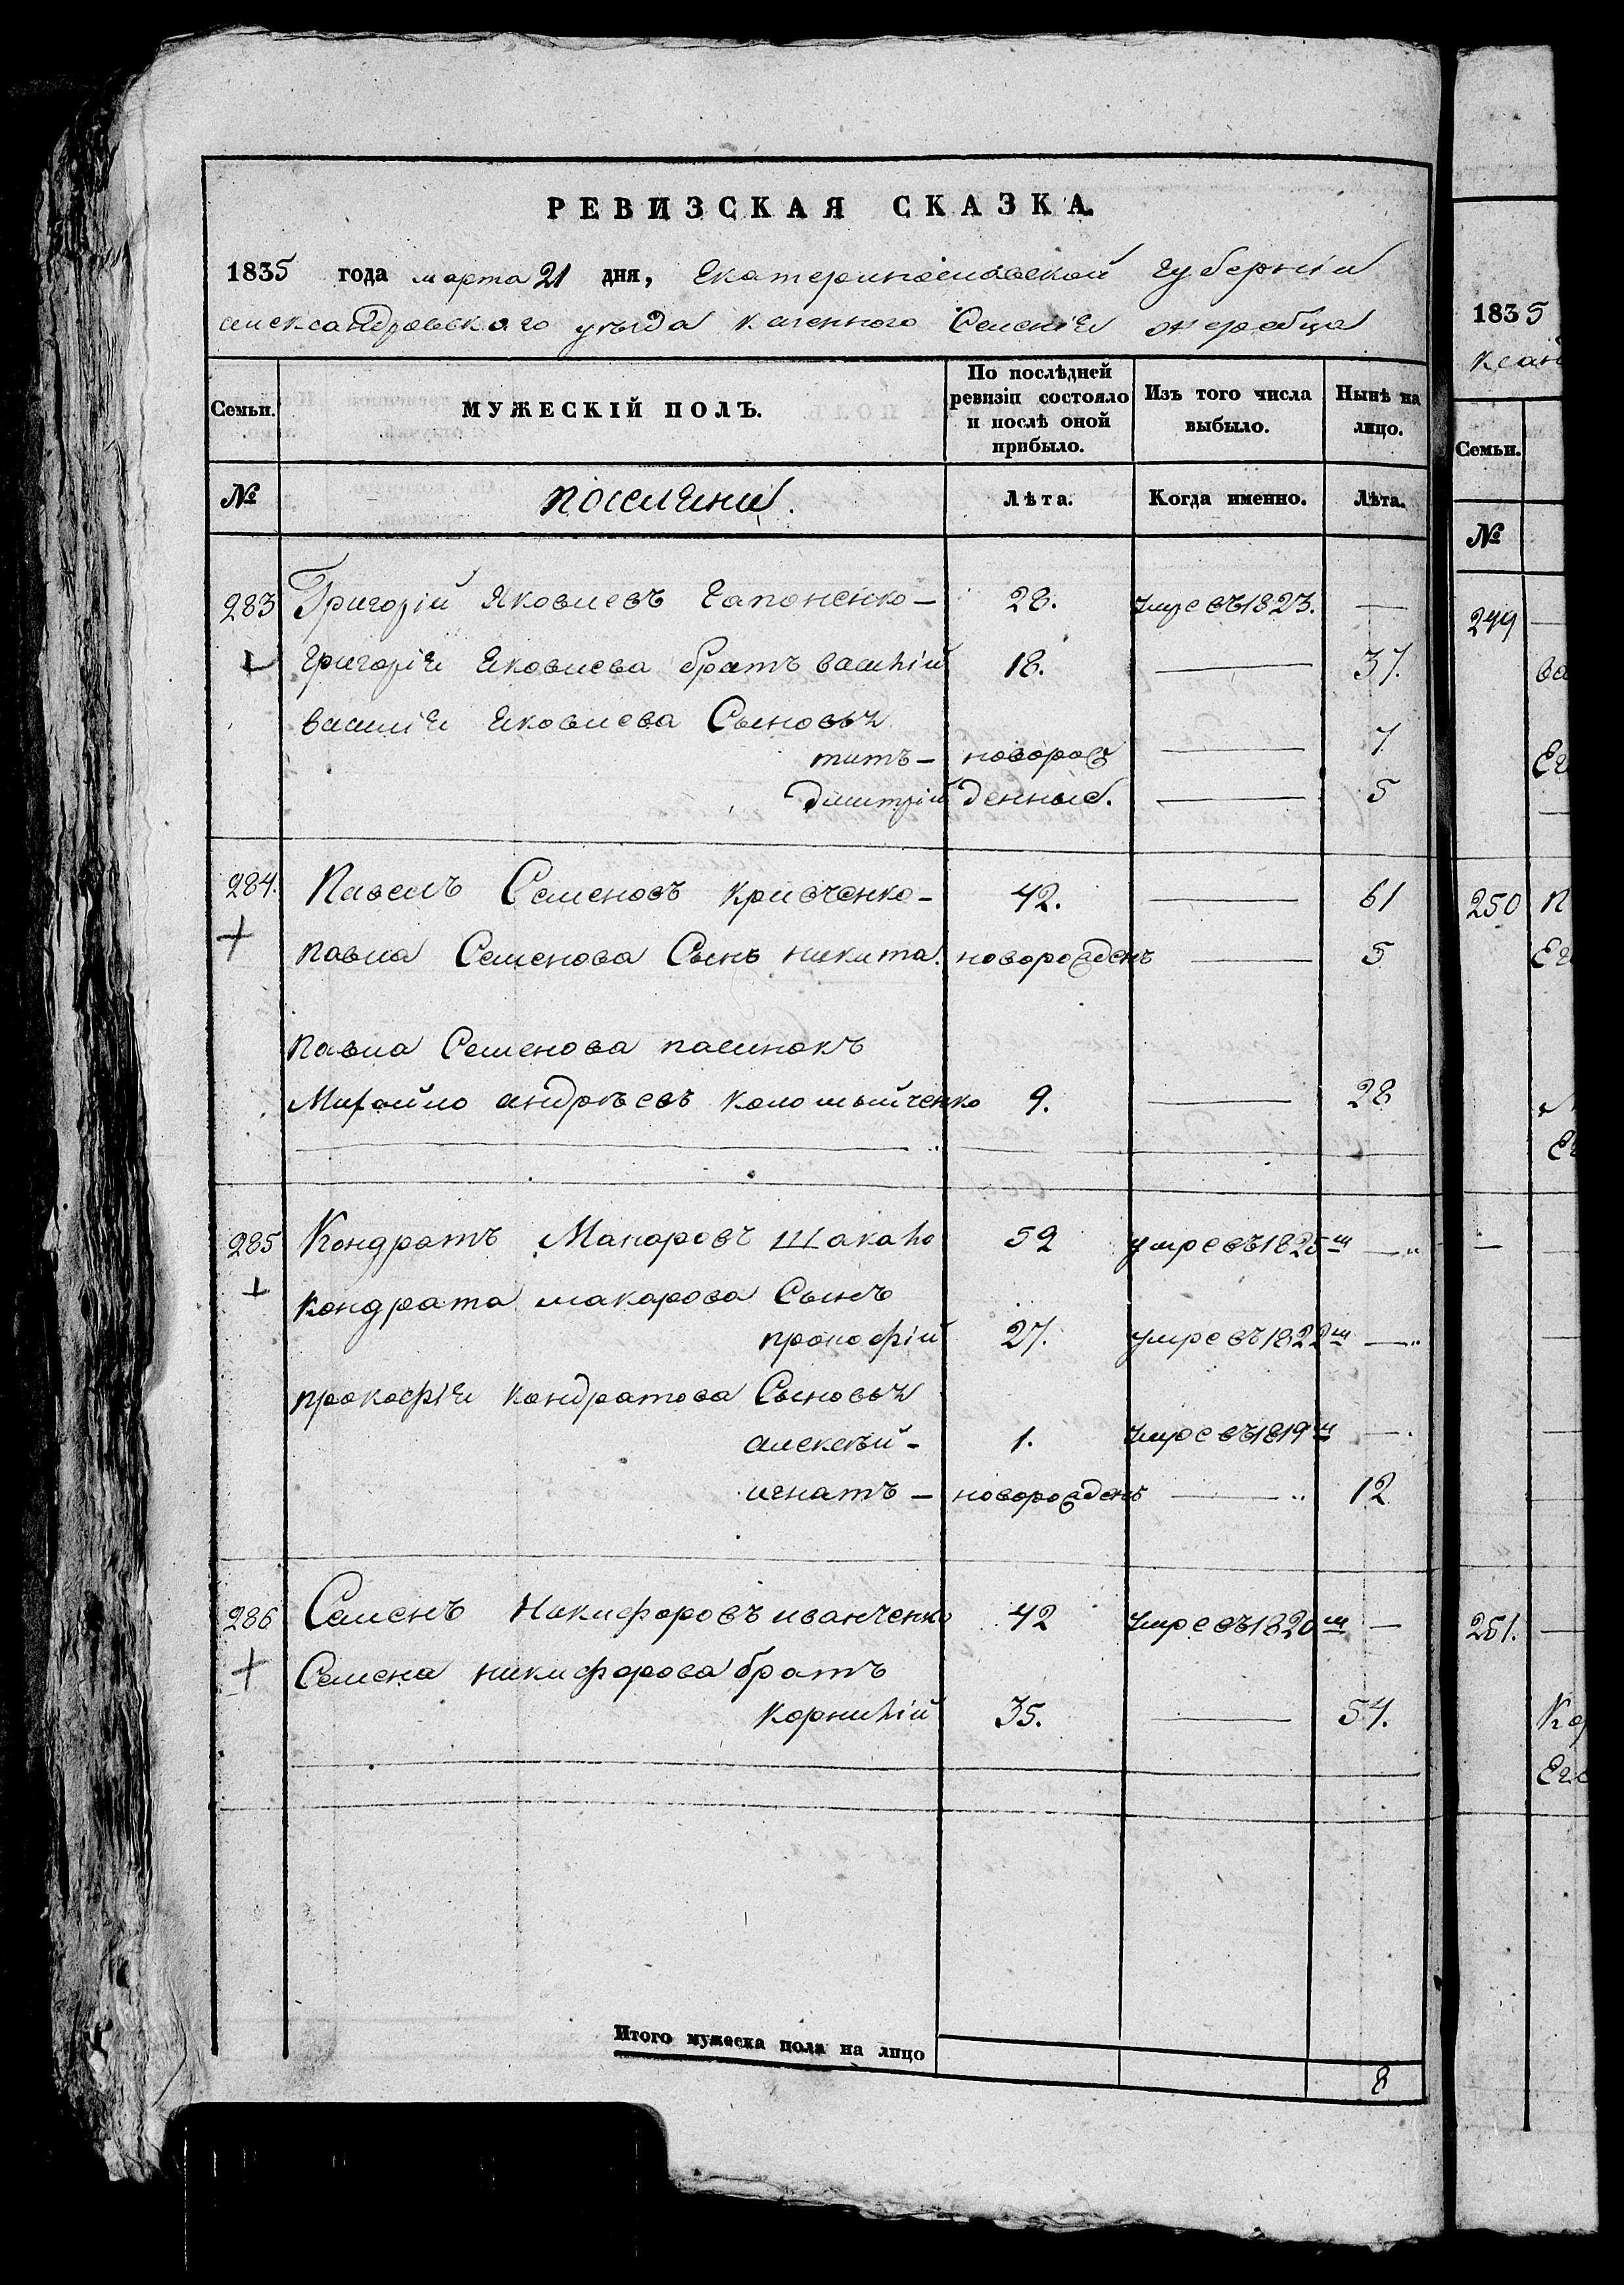 РЕВИЗСКАЯ СКАЗКА.
1835 года марта 21 дня, Екатеринославской губерніи
александровского уѣзда казенного Селенія жеребца
Семьи. МУЖЕСКІЙ ПОЛЪ. По послѣдней ревизіи состояло и послѣ оной прибыло. Изъ того числа выбыло. Нынѣ на лицо.
№ поселяни. Лѣта. Когда именно. Лѣта.
283 Григорій Яковлевъ Гапоненко — 28. умре въ 1823. —
григорія Яковлева братъ василій 18. — 37.
василія Яковлева Сыновья
титъ — новорож — 7
дмитрій денные. — 5
284. Павелъ Семеновъ кривченко — 42. — 61
+ павла Семенова Сынъ никита. новорожденъ — 5
павла Семенова пасинокъ
Михайло андрѣевъ коломыйченко 9. — 28
285 Кондратъ Макаровъ Шакало 59 умре въ 1825м —
+ кондрата макарова Сынъ
прокофій 27. умре въ 1822м —
прокофія кондратова Сыновья
алексѣй — 1. умре въ 1819м —
игнатъ — новорожденъ — 12
286 Семенъ Никифоровъ иванченко 42 умре въ 1820м —
+ Семена никифорова братъ
корнилій 35. — 54.
Итого мужеска пола на лицо 8
1835
ксан
Семьи.
№
249
ва
Ег
250 П
Ег
251.
Ко
Его